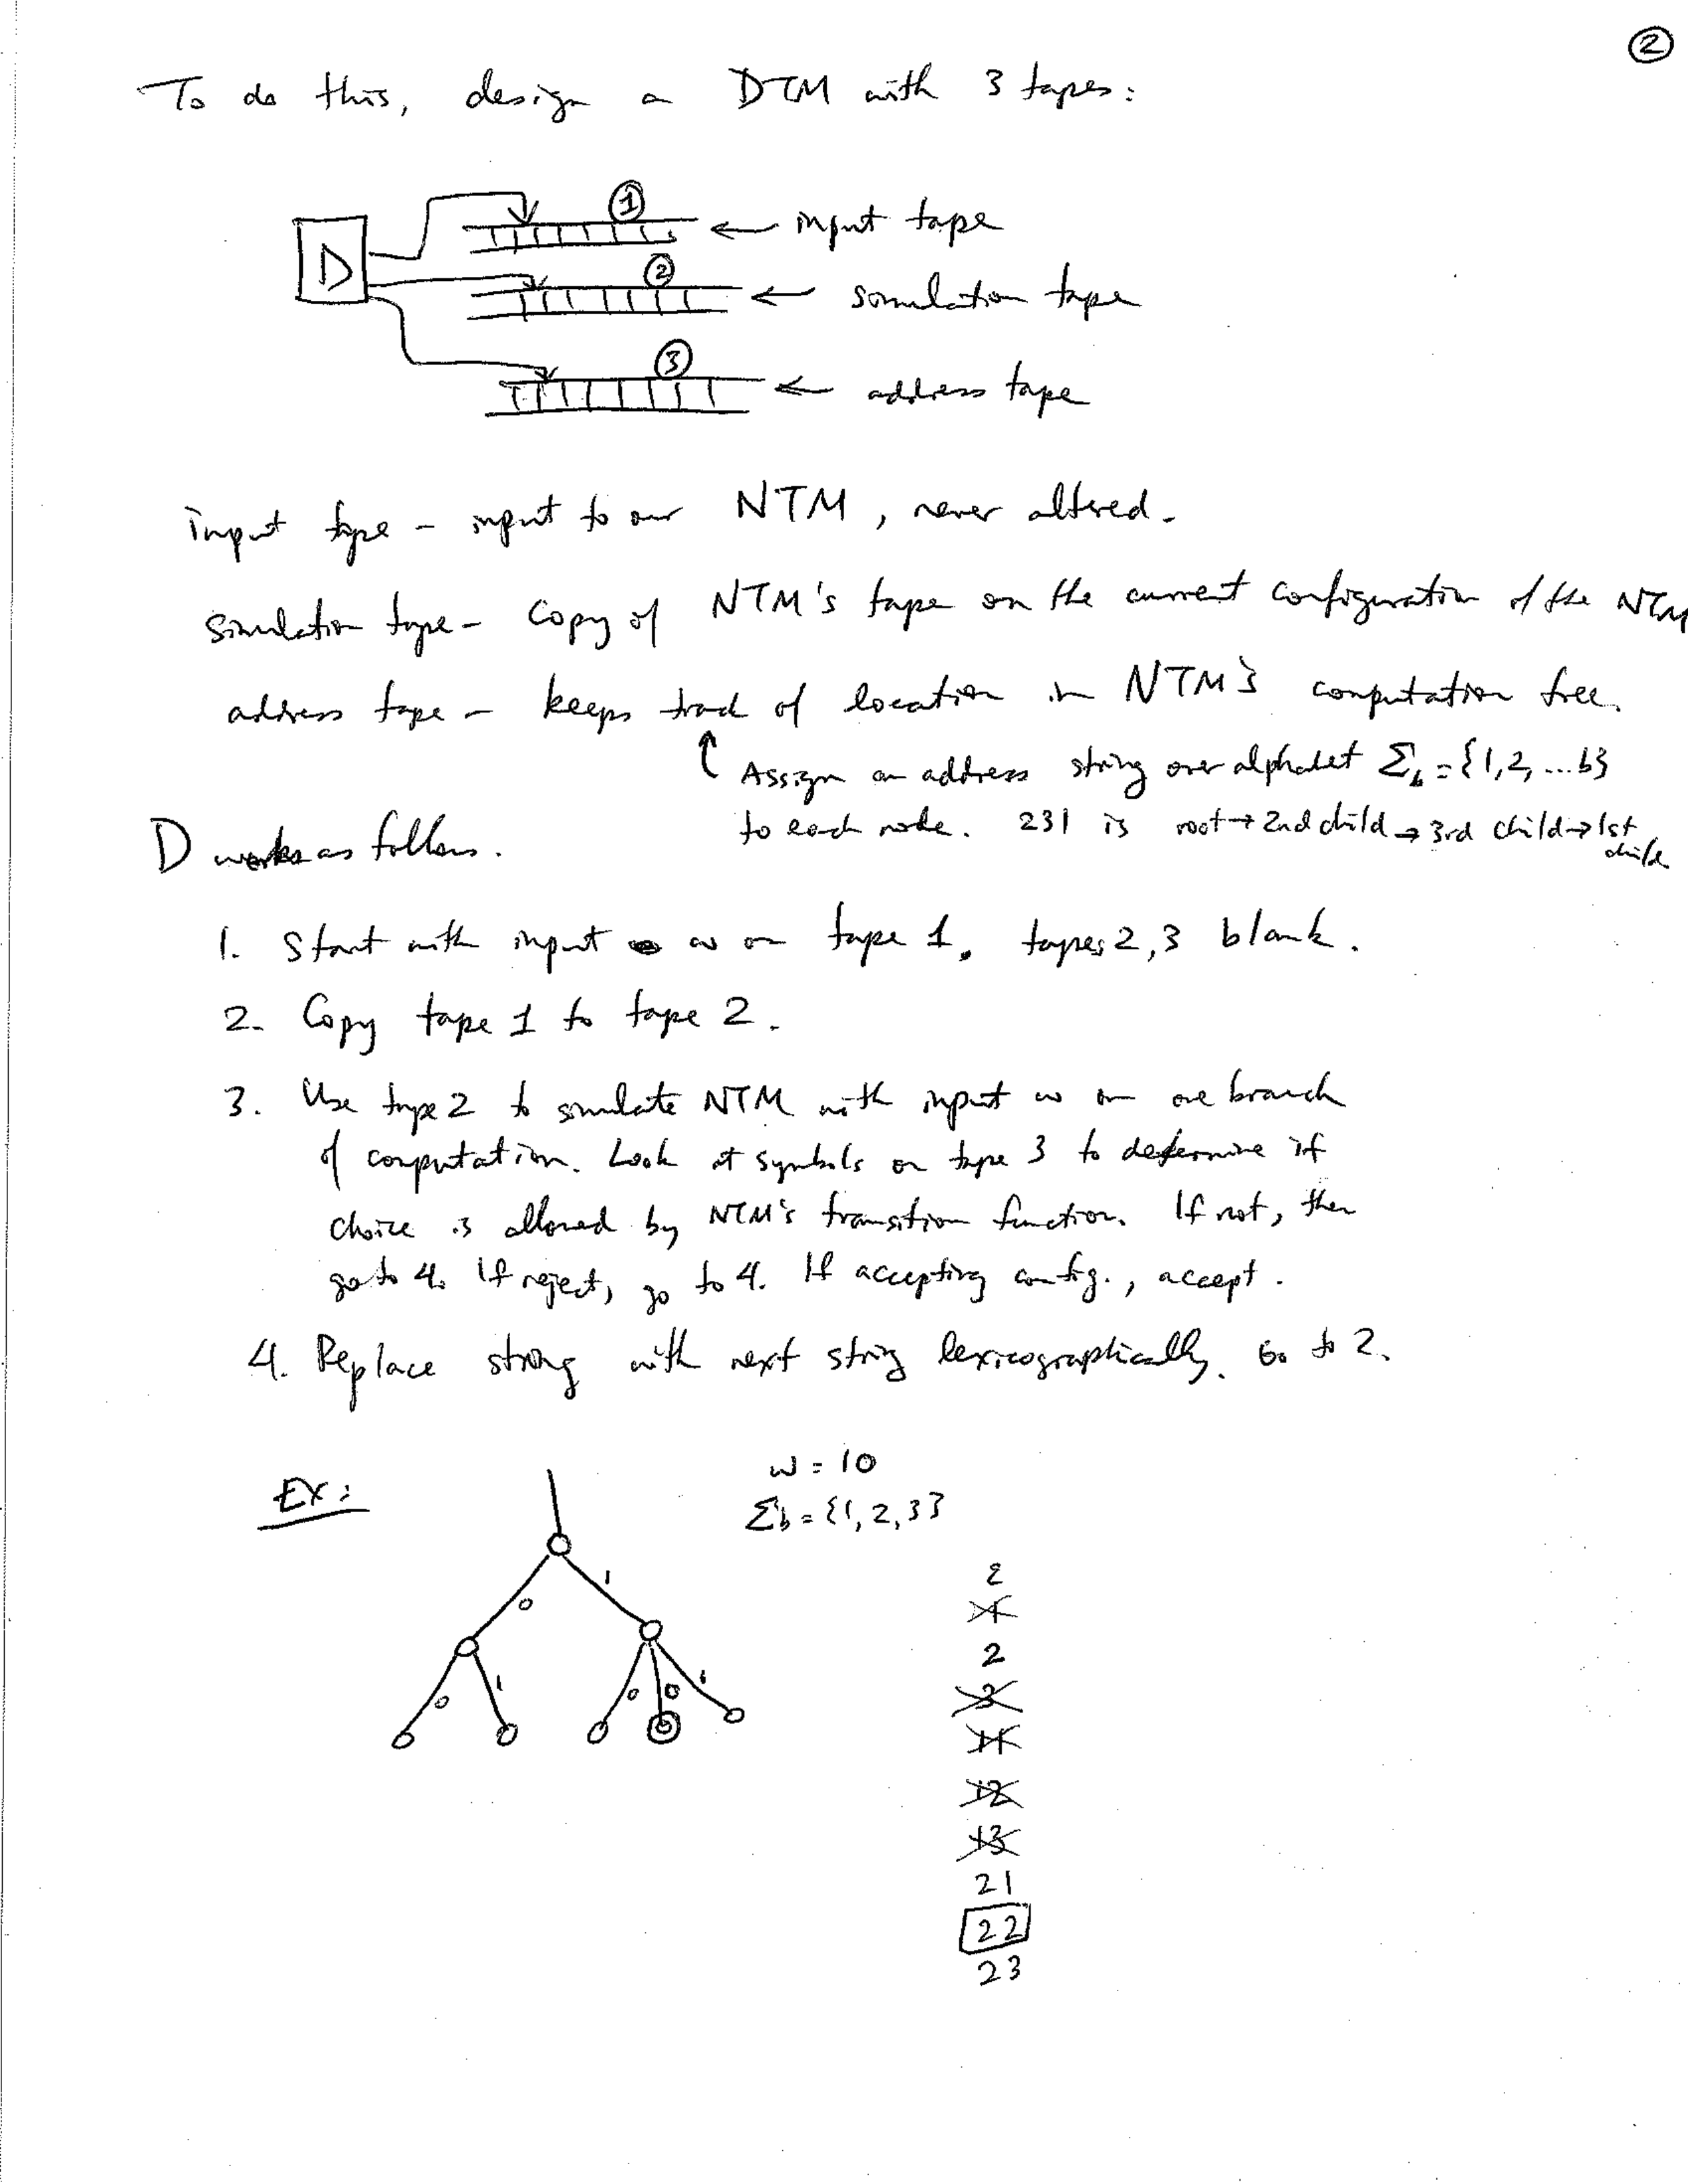 ②
To do this, design a DTM with 3 tapes:
D
① ← input tape
② ← simulation tape
③ ← address tape
input tape - input to our NTM, never altered.
simulation tape - copy of NTM's tape on the current configuration of the NTM
address tape - keeps track of location in NTM's computation tree.
↑ Assign an address string over alphabet Σb = {1, 2, ... b}
to each node. 231 is root → 2nd child → 3rd child → 1st
child
D works as follows.
1. Start with input w on tape 1, tapes 2,3 blank.
2. Copy tape 1 to tape 2.
3. Use tape 2 to simulate NTM with input w on one branch
of computation. Look at symbols on tape 3 to determine if
choice is allowed by NTM's transition function. If not, then
go to 4. If reject, go to 4. If accepting config., accept.
4. Replace string with next string lexicographically. Go to 2.
Ex:
w = 10
Σb = {1, 2, 3}
0 1
0 1 0 0 1
ε
1
2
3
11
12
13
21
22
23